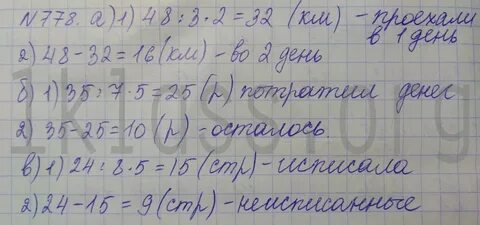 N778. а) 1) 48 : 3 · 2 = 32 (км) - проехали
в 1 день
2) 48 - 32 = 16 (км) - во 2 день
б) 1) 35 : 7 · 5 = 25 (р) потратил денег
2) 35 - 25 = 10 (р) - осталось.
в) 1) 24 : 8 · 5 = 15 (стр) - исписала
2) 24 - 15 = 9 (стр) - неисписанные
1klass.org